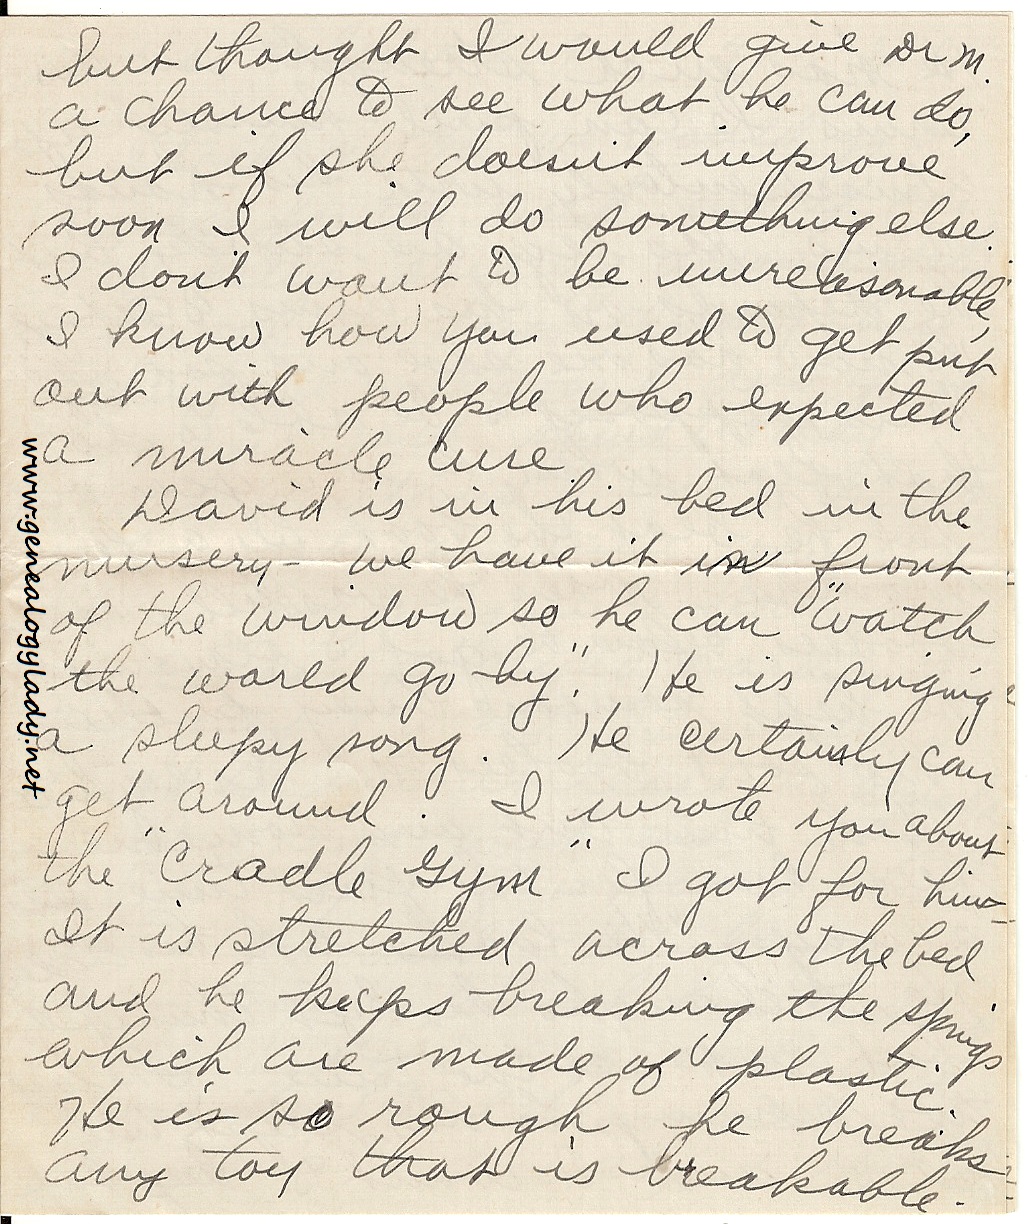 but thought I would give Dr M.
a chance to see what he can do,
but if she doesn't improve
soon I will do something else.
I don't want to be unreasonable,
I know how you used to get put
out with people who expected
a miracle cure
David is in his bed in the
nursery - we have it in front
of the window so he can "watch
the world go by". He is singing
a sleepy song. He certainly can
get around. I wrote you about
the "Cradle Gym" I got for him -
It is stretched across the bed
and he keeps breaking the springs
which are made of plastic.
He is so rough he breaks
any toy that is breakable.
www.genealogylady.net